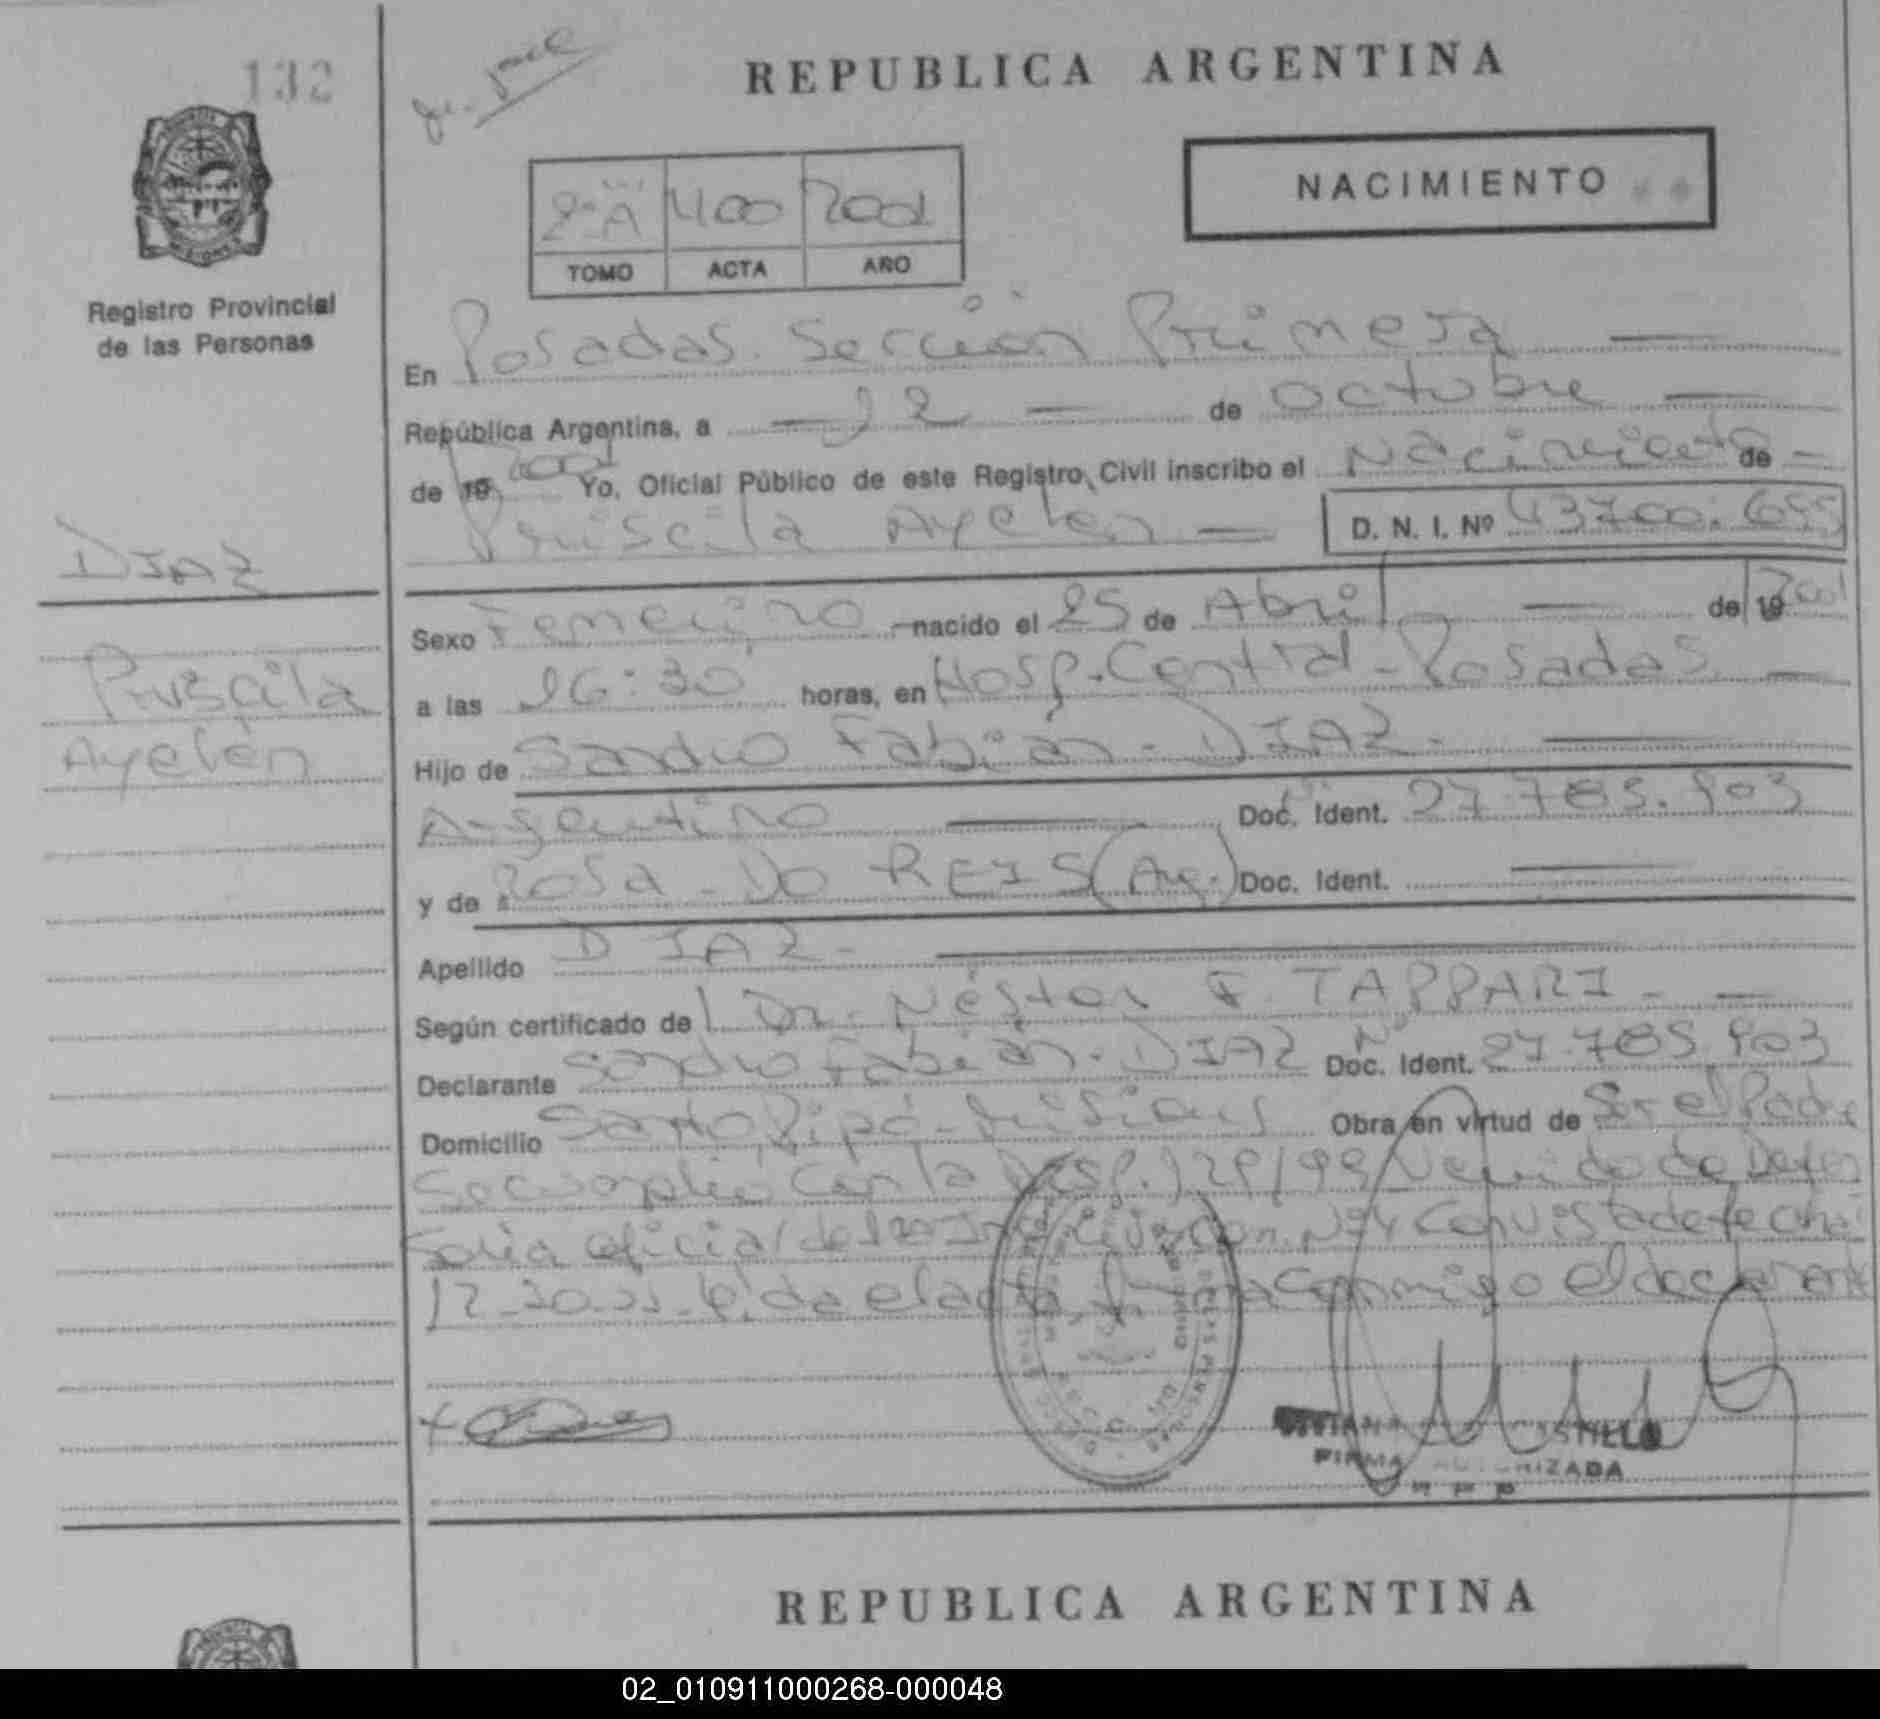 132
REPUBLICA ARGENTINA
NACIMIENTO
2º A 400 2001
TOMO ACTA AÑO
Registro Provincial
de las Personas
En Posadas. Sección Primera
República Argentina, a 12 de octubre
de 19 2001 Yo, Oficial Público de este Registro Civil inscribo el Nacimiento de
Priscila Ayelen D. N. I. Nº 43700.655
DIAZ
Sexo Femenino nacido el 25 de Abril de 19 2001
Priscila
a las 16:30 horas, en Hosp. Central - Posadas
Ayelén
Hijo de Sandro Fabián - DIAZ -
Argentino Doc. Ident. 27.785.903
y de Rosa - DO REIS (Arg.) Doc. Ident.
Apellido DIAZ -
Según certificado de Dr. Néstor F. TAPPARI -
Declarante Sandro Fabián - DIAZ Doc. Ident. 27.785.903
Domicilio Santo Pipó - Misiones Obra en virtud de Ser el Padre
Se cumplió con la Disp. 129/99 Venido de Defen
soria oficial de Instrucción Nº 4 Con vista de fecha
12-10-01. Leída el acta, firma conmigo el declarante
FIRMA AUTORIZADA
REPUBLICA ARGENTINA
02_010911000268-000048